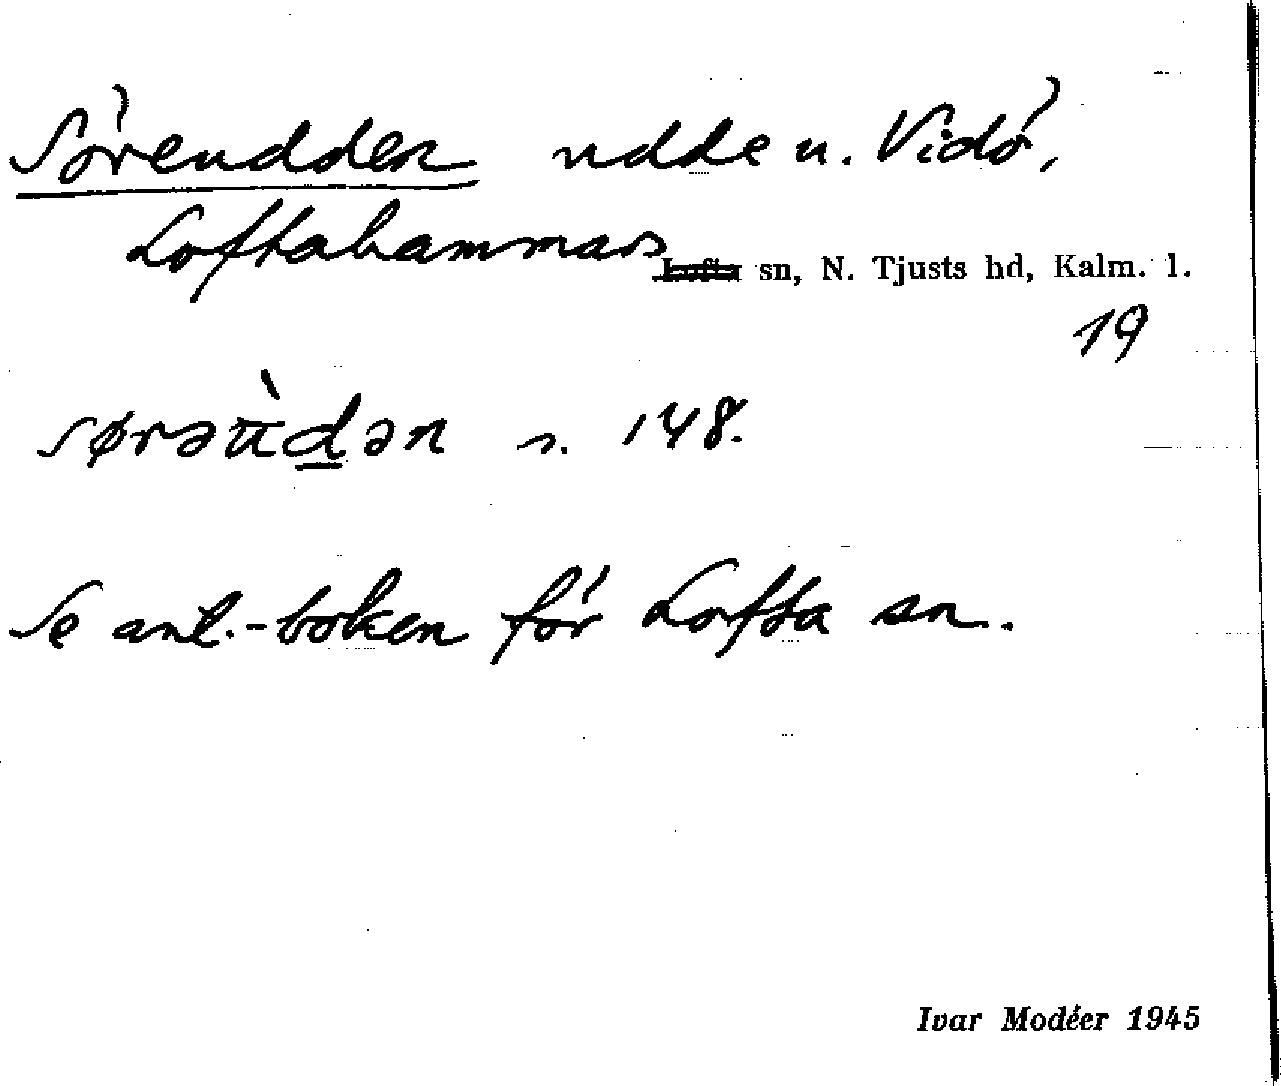 Sörendden udde u. Vidö,
Loftahammars Lofta sn, N. Tjusts hd, Kalm. l.
19
sørəùdən s. 148.
Se ant.-boken för Lofta sn.
Ivar Modéer 1945